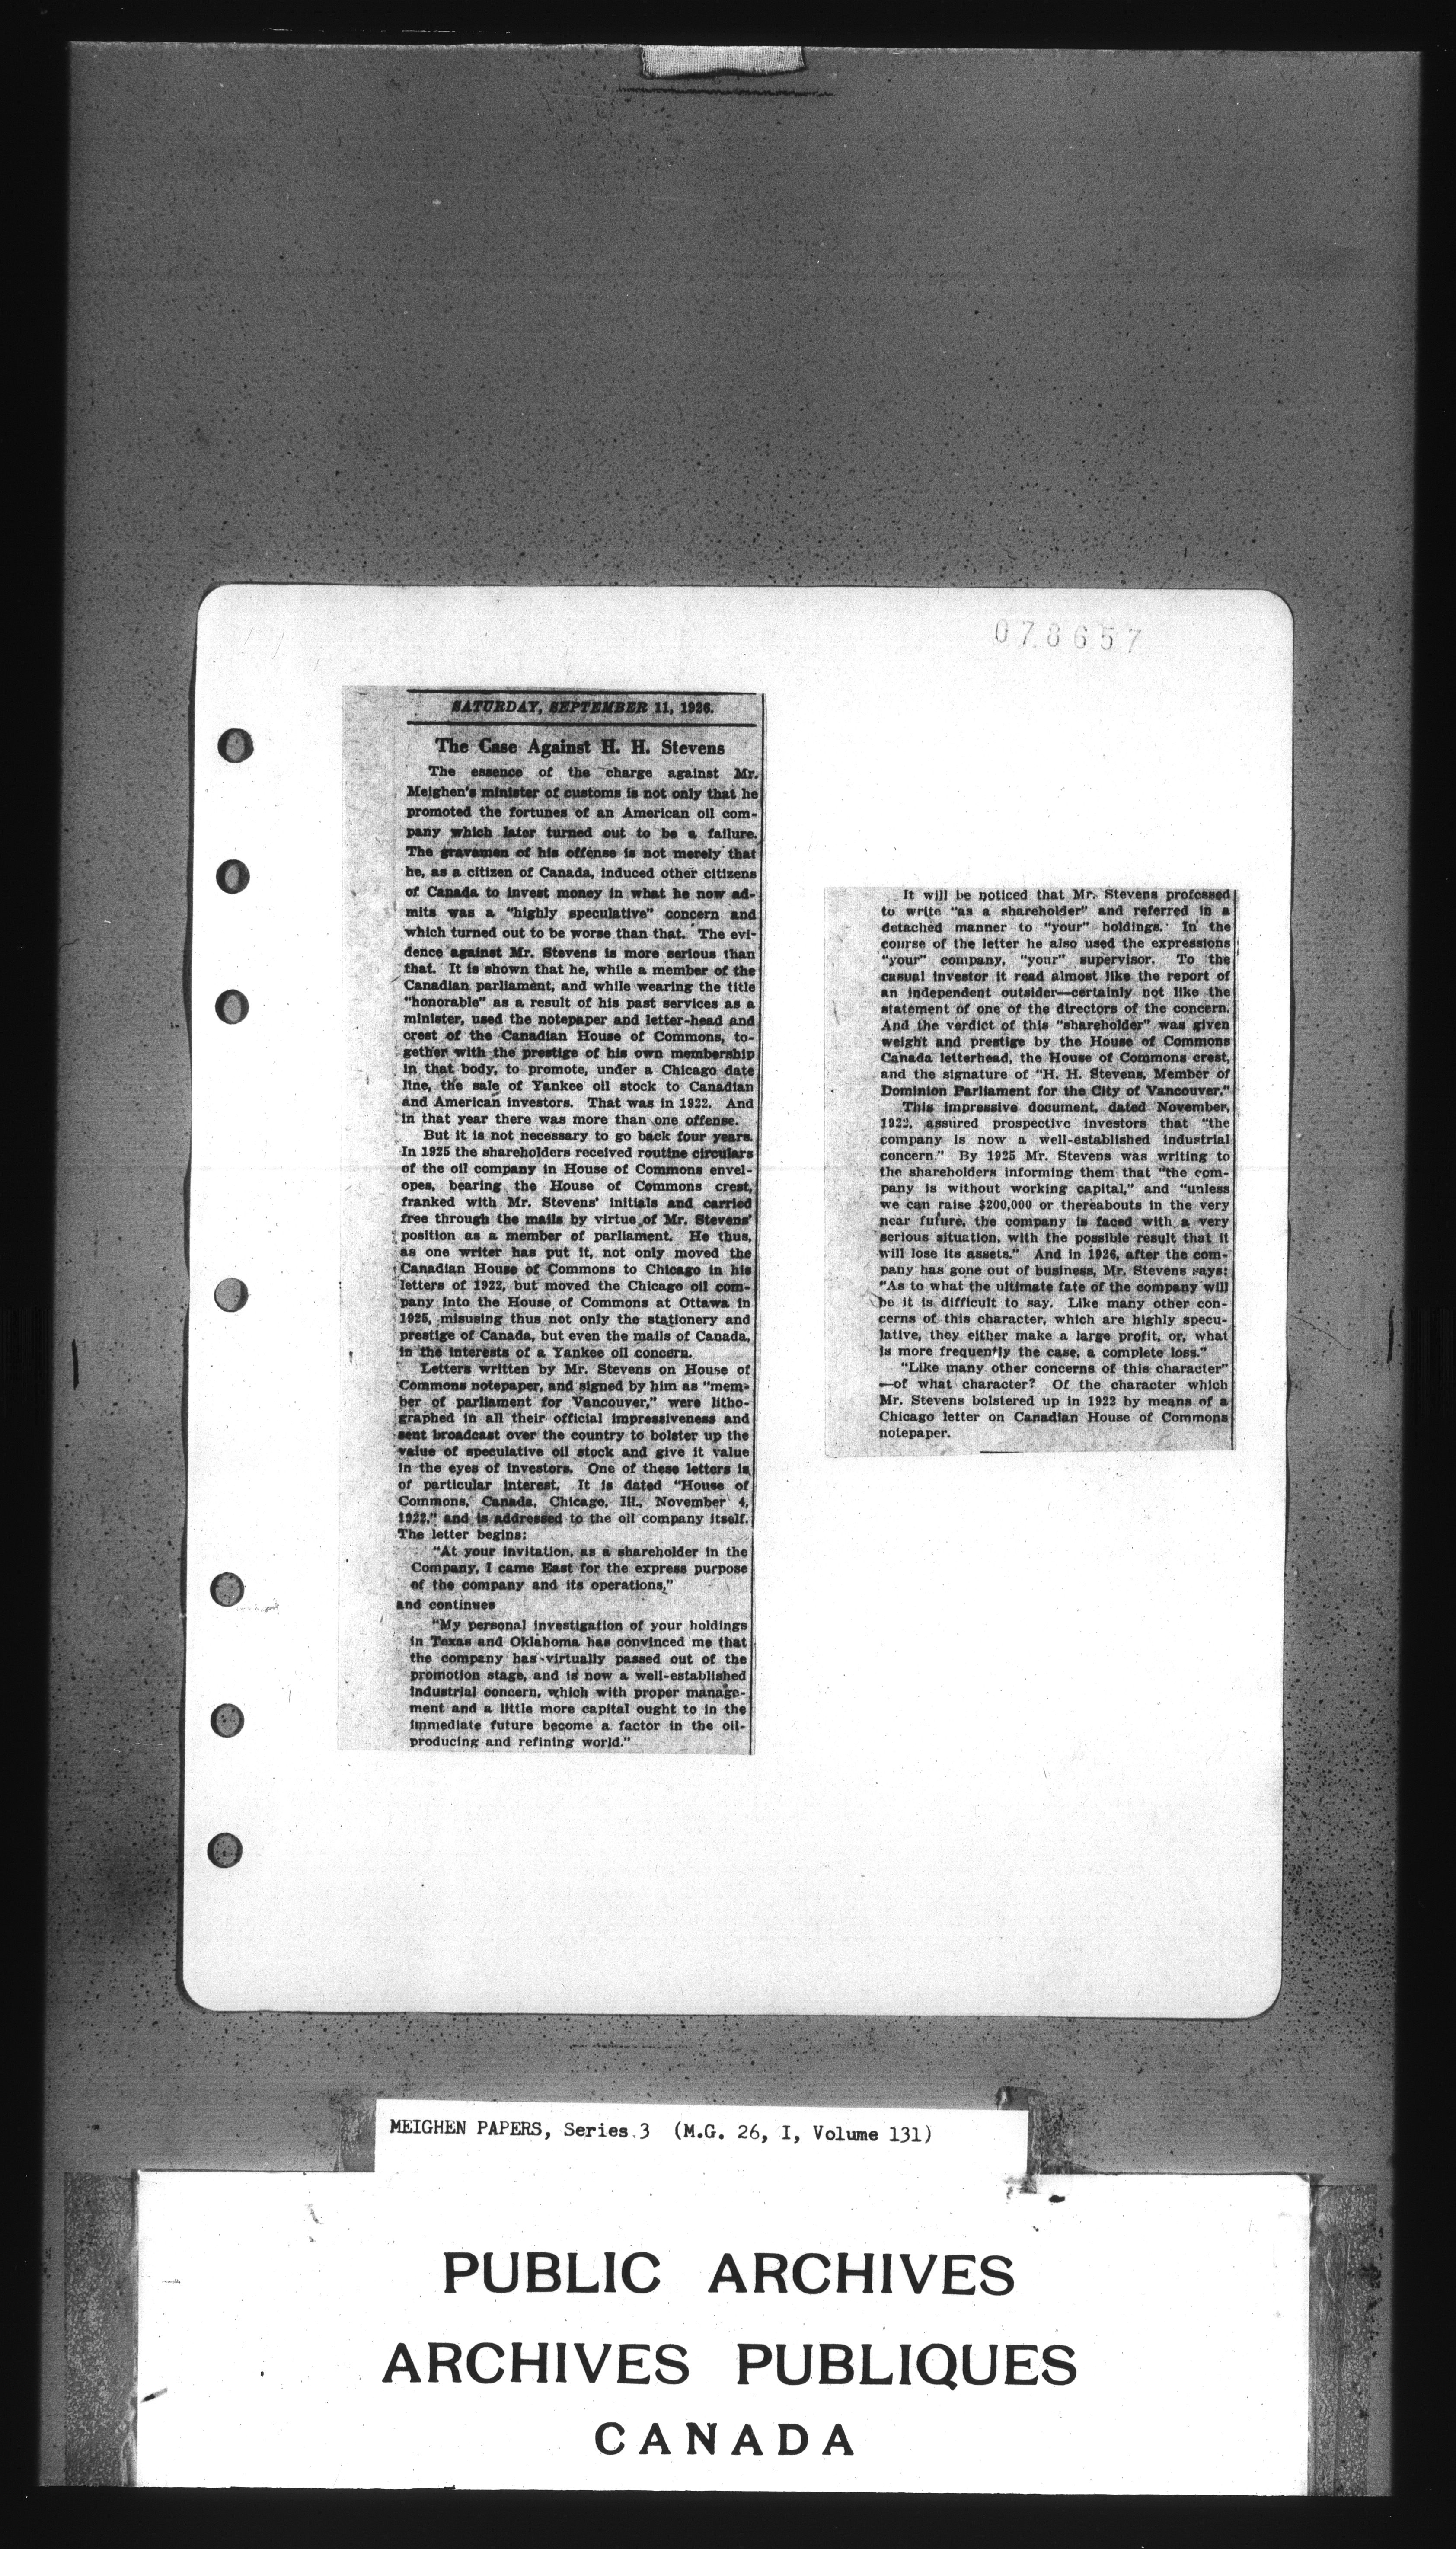 078657
SATURDAY, SEPTEMBER 11, 1926.
The Case Against H. H. Stevens
The essence of the charge against Mr.
Meighen's minister of customs is not only that he
promoted the fortunes of an American oil com-
pany which later turned out to be a failure.
The gravamen of his offense is not merely that
he, as a citizen of Canada, induced other citizens
of Canada to invest money in what he now ad-
mits was a "highly speculative" concern and
which turned out to be worse than that. The evi-
dence against Mr. Stevens is more serious than
that. It is shown that he, while a member of the
Canadian parliament, and while wearing the title
"honorable" as a result of his past services as a
minister, used the notepaper and letter-head and
crest of the Canadian House of Commons, to-
gether with the prestige of his own membership
in that body, to promote, under a Chicago date
line, the sale of Yankee oil stock to Canadian
and American investors. That was in 1922. And
in that year there was more than one offense.
But it is not necessary to go back four years.
In 1925 the shareholders received routine circulars
of the oil company in House of Commons envel-
opes, bearing the House of Commons crest,
franked with Mr. Stevens' initials and carried
free through the mails by virtue of Mr. Stevens'
position as a member of parliament. He thus,
as one writer has put it, not only moved the
Canadian House of Commons to Chicago in his
letters of 1922, but moved the Chicago oil com-
pany into the House of Commons at Ottawa in
1925, misusing thus not only the stationery and
prestige of Canada, but even the mails of Canada,
in the interests of a Yankee oil concern.
Letters written by Mr. Stevens on House of
Commons notepaper, and signed by him as "mem-
ber of parliament for Vancouver," were litho-
graphed in all their official impressiveness and
sent broadcast over the country to bolster up the
value of speculative oil stock and give it value
in the eyes of investors. One of these letters is
of particular interest. It is dated "House of
Commons, Canada, Chicago, Ill., November 4,
1922," and is addressed to the oil company itself.
The letter begins:
"At your invitation, as a shareholder in the
Company, I came East for the express purpose
of the company and its operations,"
and continues
"My personal investigation of your holdings
in Texas and Oklahoma has convinced me that
the company has virtually passed out of the
promotion stage, and is now a well-established
industrial concern, which with proper manage-
ment and a little more capital ought to in the
immediate future become a factor in the oil-
producing and refining world."
It will be noticed that Mr. Stevens professed
to write "as a shareholder" and referred in a
detached manner to "your" holdings. In the
course of the letter he also used the expressions
"your" company, "your" supervisor. To the
casual investor it read almost like the report of
an independent outsider—certainly not like the
statement of one of the directors of the concern.
And the verdict of this "shareholder" was given
weight and prestige by the House of Commons
Canada letterhead, the House of Commons crest,
and the signature of "H. H. Stevens, Member of
Dominion Parliament for the City of Vancouver."
This impressive document, dated November,
1922, assured prospective investors that "the
company is now a well-established industrial
concern." By 1925 Mr. Stevens was writing to
the shareholders informing them that "the com-
pany is without working capital," and "unless
we can raise $200,000 or thereabouts in the very
near future, the company is faced with a very
serious situation, with the possible result that it
will lose its assets." And in 1926, after the com-
pany has gone out of business, Mr. Stevens says:
"As to what the ultimate fate of the company will
be it is difficult to say. Like many other con-
cerns of this character, which are highly specu-
lative, they either make a large profit, or, what
is more frequently the case, a complete loss."
"Like many other concerns of this character"
—of what character? Of the character which
Mr. Stevens bolstered up in 1922 by means of a
Chicago letter on Canadian House of Commons
notepaper.
MEIGHEN PAPERS, Series 3 (M.G. 26, I, Volume 131)
PUBLIC ARCHIVES
ARCHIVES PUBLIQUES
CANADA